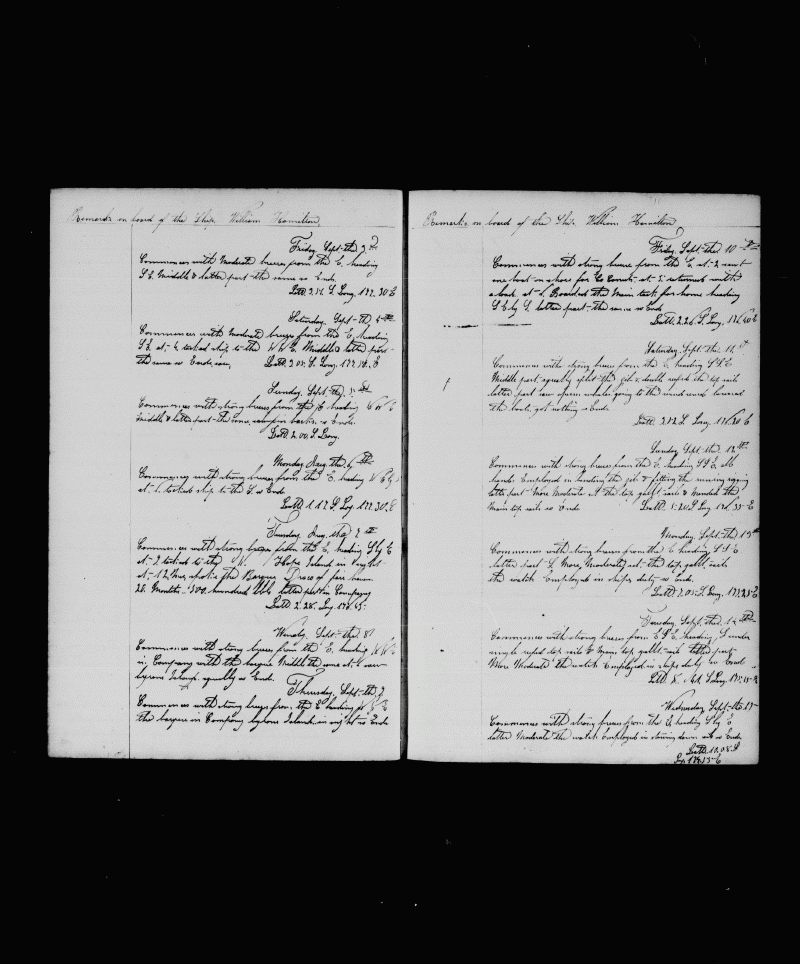 Remarks on board of the Ship William Hamilton
Friday Sept the 3d
Commences with Moderate breeze from the E. heading
S E. Middle & latter part the same so Ends.
Latt. 2.14 S. Long. 177.30 E
Saturday Sept the 4th
Commences with moderate breeze from the E, heading
S E. at tacked ship to the N N E. Middle & latter part
the same so Ends Latt. 2.00 S. Long. 177.14 E
Sunday Sept the 5th
Commences with strong breeze from the E heading N N E
Middle & latter part the same so Ends
Latt. 2.00 S Long.
Monday Aug the 6th
Commences with strong breeze from the E. heading N
at tacked ship to the S. so Ends
Latt 1.17 S. Log 177.30 E
Tuesday Aug the 7th
Commences with strong breeze from the E, heading S by E
at 2 tacked to the N. Hope Island in Sight
at 12 the Barque
26 Months 300 hundred bbls latter part in Company
Latt. 2.28. Log 176.45
Wensday Sept the 8th
Commences with strong breeze from the E. heading N N E
in Company with the barque Middle the same at saw
byrons Island so Ends.
Thursday, Sept the 9
Commences with strong breeze from the E heading N N E
the barque in Company byrons Island in sight so Ends
Remarks on board of the Ship William Hamilton
Friday Sept the 10th
Commences with strong breeze from the E. at 2 sent
one boat on shore for at 5 returned with
a load at 6 Braced the Main tack for home heading
S E by S. latter part the same so Ends
Latt. 2.26 S Long. 176.40 E
Saturday Sept the 11th
Commences with strong breeze from the E heading S S E
Middle part squaly the jib & double reefed the top sails
latter part saw sperm whales going to the windward lowered
the boats, got nothing so Ends.
Latt. 2.12 S. Long. 176.20 E
Sunday Sept the 12th
Commences with strong breeze from the E. heading S S E. All
hands Employed in bending the jib & fitting the rigging
latter part More Moderate set the top gallt sails & Mended the
Main top sails so Ends Latt. 5.20 S Log 176.35 E
Monday Sept the 13th
Commences with strong breeze from the E heading S S E
latter part More Moderate set the top gallt sails
the watch Employed in ships duty so Ends.
Latt. 7.01 S. Long. 177.25 E
Tuesday Sept the 14th
Commences with strong breeze from E S E heading S under
single reefed top sails & Main top gallt sail latter part
More Moderate the watch Employed in ships duty so Ends
Latt 8. S. Long 175.15 E
Wednesday Sept the 15
Commences with strong breeze from the E heading S by E
latter Moderate the watch Employed in so Ends
Latt. 10.08 S
Log 174.55 E